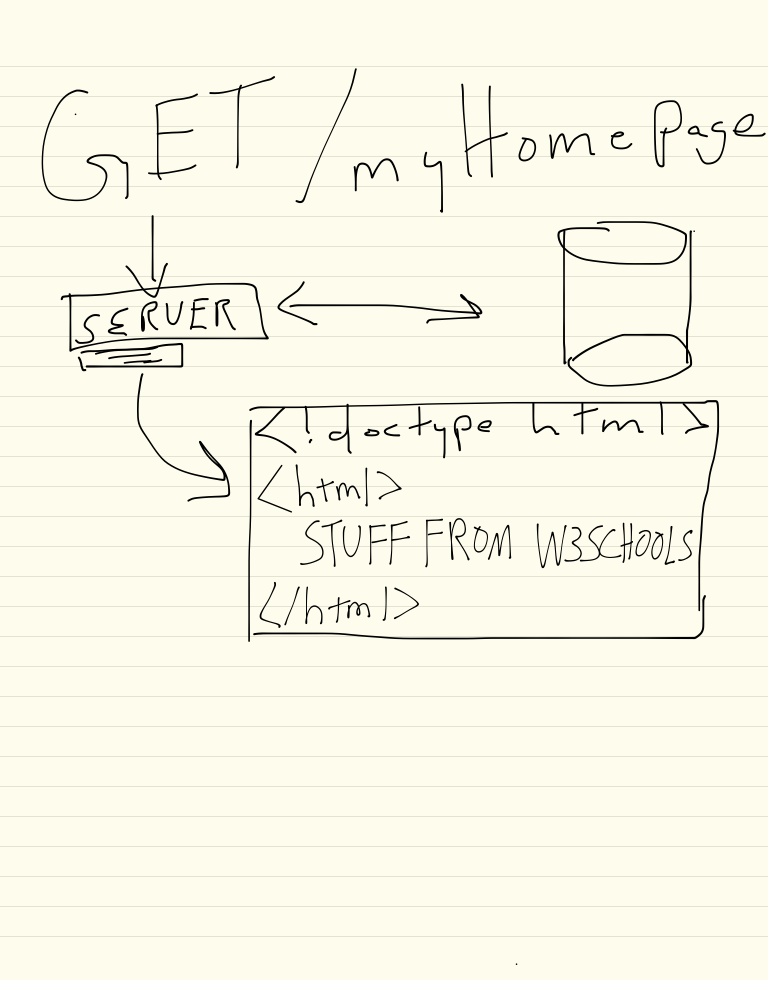 GET /myHomePage
SERVER
<!doctype html>
<html>
STUFF FROM W3SCHOOLS
</html>